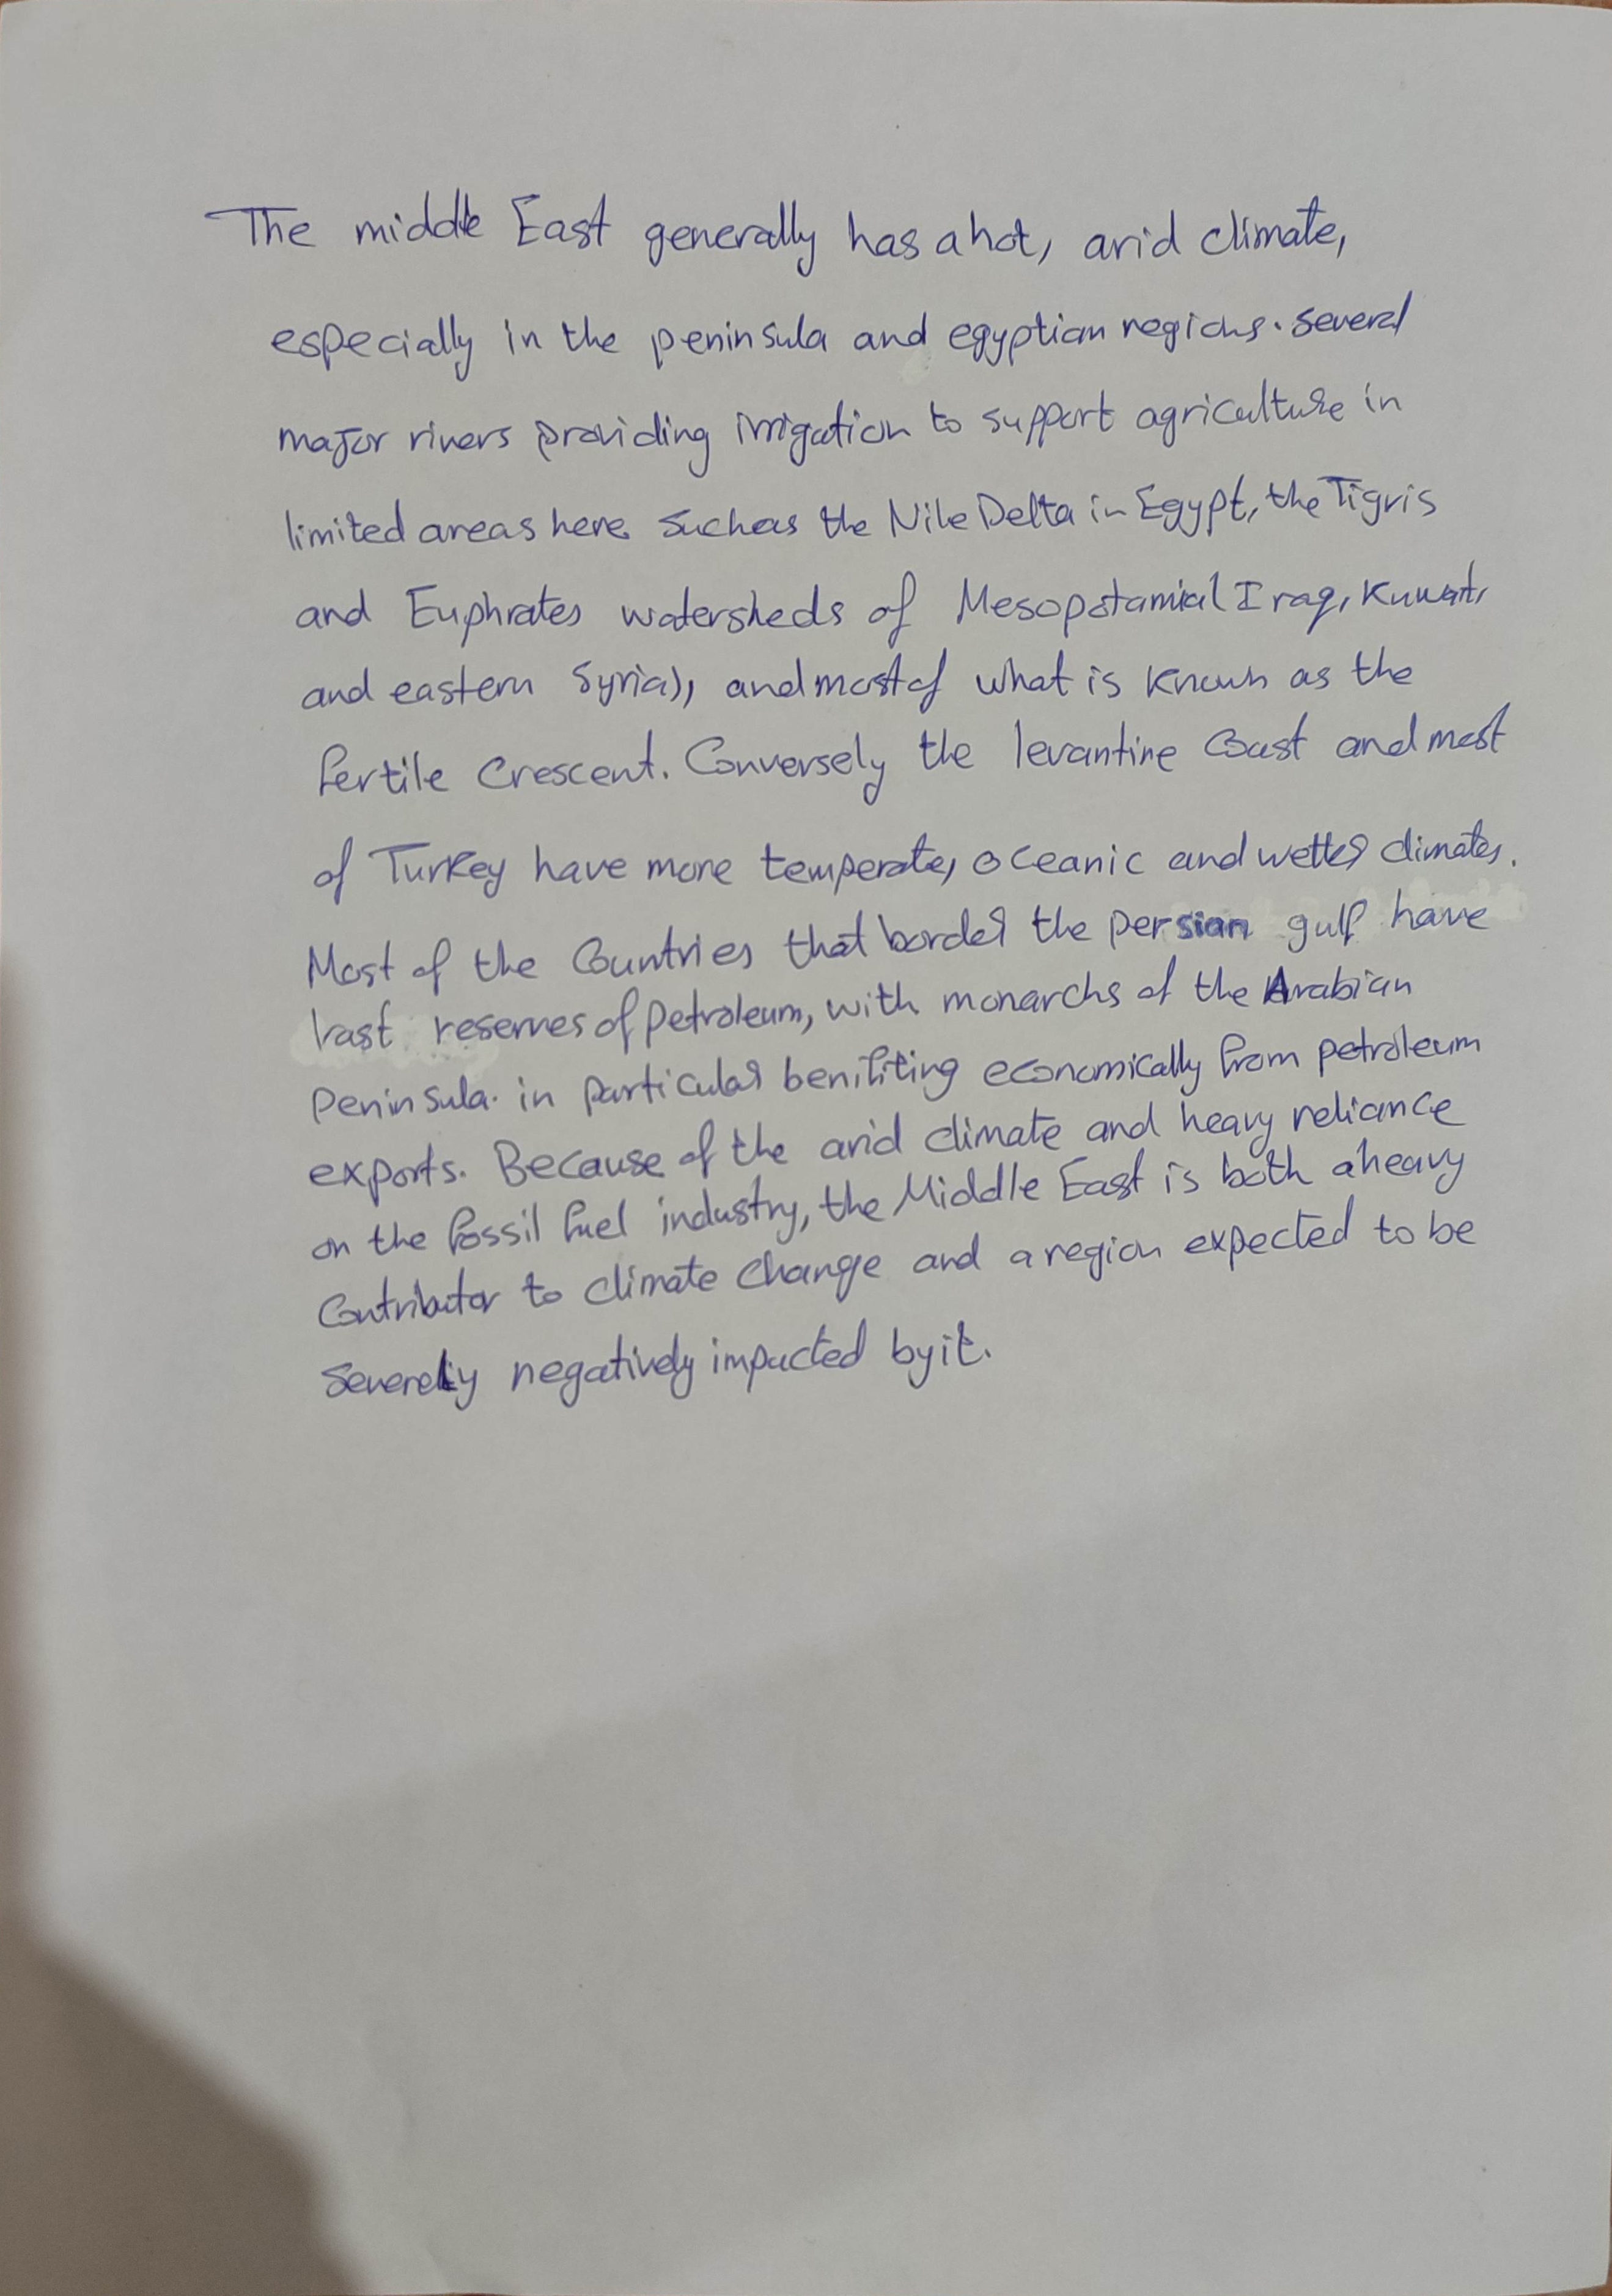 The middle East generally has a hot, arid climate,
especially in the peninsula and egyptian regions. several
major rivers providing irrigation to support agriculture in
limited areas here such as the Nile Delta in Egypt, the Tigris
and Euphrates watersheds of Mesopotamial Iraq, Kuwait,
and eastern Syria), and most of what is known as the
fertile crescent. Conversely the levantine Coast and most
of Turkey have more temperate, oceanic and wetter climates.
Most of the Countries that border the persian gulf have
vast reserves of petroleum, with monarchs of the Arabian
Peninsula. in particular benifiting economically from petroleum
exports. Because of the arid climate and heavy reliance
on the fossil fuel industry, the Middle East is both a heavy
Contributor to climate change and a region expected to be
severely negatively impacted by it.